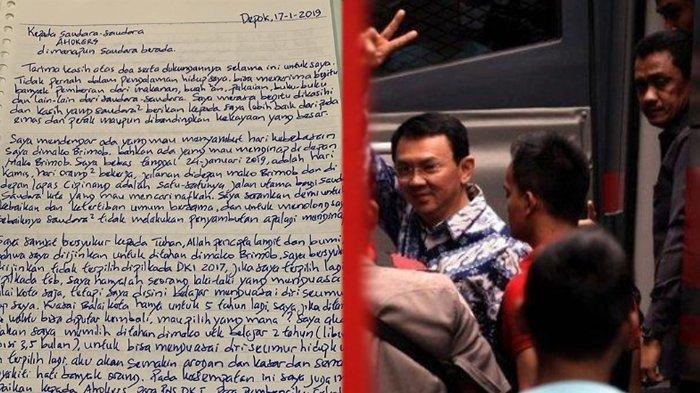 Depok, 17-1-2019
Kepada saudara-saudara
AHOKERS
dimanapun saudara berada.
Tarima kasih atas doa serta dukungannya selama ini untuk saya.
Tidak pernah dalam pengalaman hidup saya, bisa menerima begitu
banyak pemberian dari makanan, buah²an, pakaian, buku-buku
dan lain-lain dari saudara-saudara. Saya merasa begitu dikasihi
dan kasih yang saudara² berikan kepada saya lebih baik dari pada
emas dan perak maupun dibandingkan kekayaan yang besar.
Saya mendengar ada yang mau menyambut hari kebebasan
saya dimako Brimob. bahkan ada yang mau menginap di depan
Mako Brimob. Saya bebas tanggal 24-januari 2019, adalah hari
Kamis, hari orang² bekerja, jalanan didepan mako Brimob dan di
depan lapas Cipinang adalah satu-satunya jalan utama bagi saudara
saudara kita yang mau mencari nafkah. Saya sarankan demi untuk
kebaikan dan ketertiban umum bersama, dan untuk menolong saya
sebaiknya saudara² tidak melakukan penyambutan apalagi menginap
Saya sangat bersyukur kepada Tuhan, Allah pencipta langit dan bumi
bahwa saya diijinkan untuk ditahan dimako Brimob. Saya bersyukur
diijinkan tidak terpilih dipilkada DKI 2017, jika saya terpilih lagi
dipilkada tsb, saya hanyalah seorang laki-laki yang menguasai
balai kota saja, tetapi saya disini belajar menguasai diri seumur
hidup saya. Kuasai Balai kota hanya untuk 5 tahun lagi, saya jika ditanya
waktu bisa diputar kembali, mau pilih yang mana? Saya akan
katakan saya memilih ditahan dimako utk belajar 2 tahun (libur
3,5 bulan), untuk bisa menguasai diri seumur hidupku
terpilih lagi, aku akan semakin arogan dan kasar dan semakin
menyakiti hati banyak orang. Pada kesempatan ini saya juga
kepada Ahokers, para PNS DKI, para pembenci